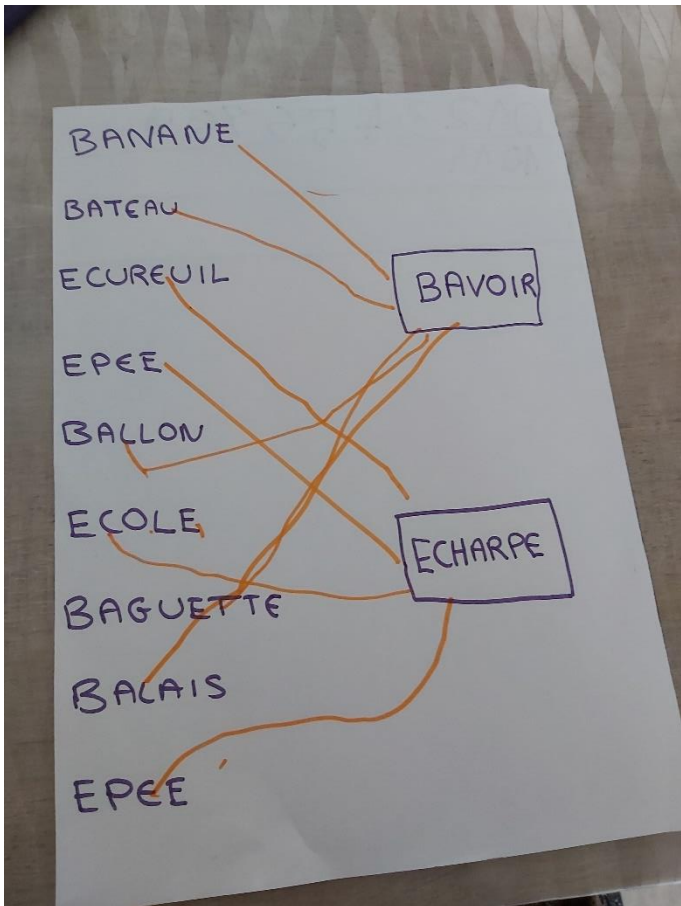 BANANE
BATEAU
ECUREUIL
EPEE
BALLON
ECOLE
BAGUETTE
BALAIS
EPEE
BAVOIR
ECHARPE